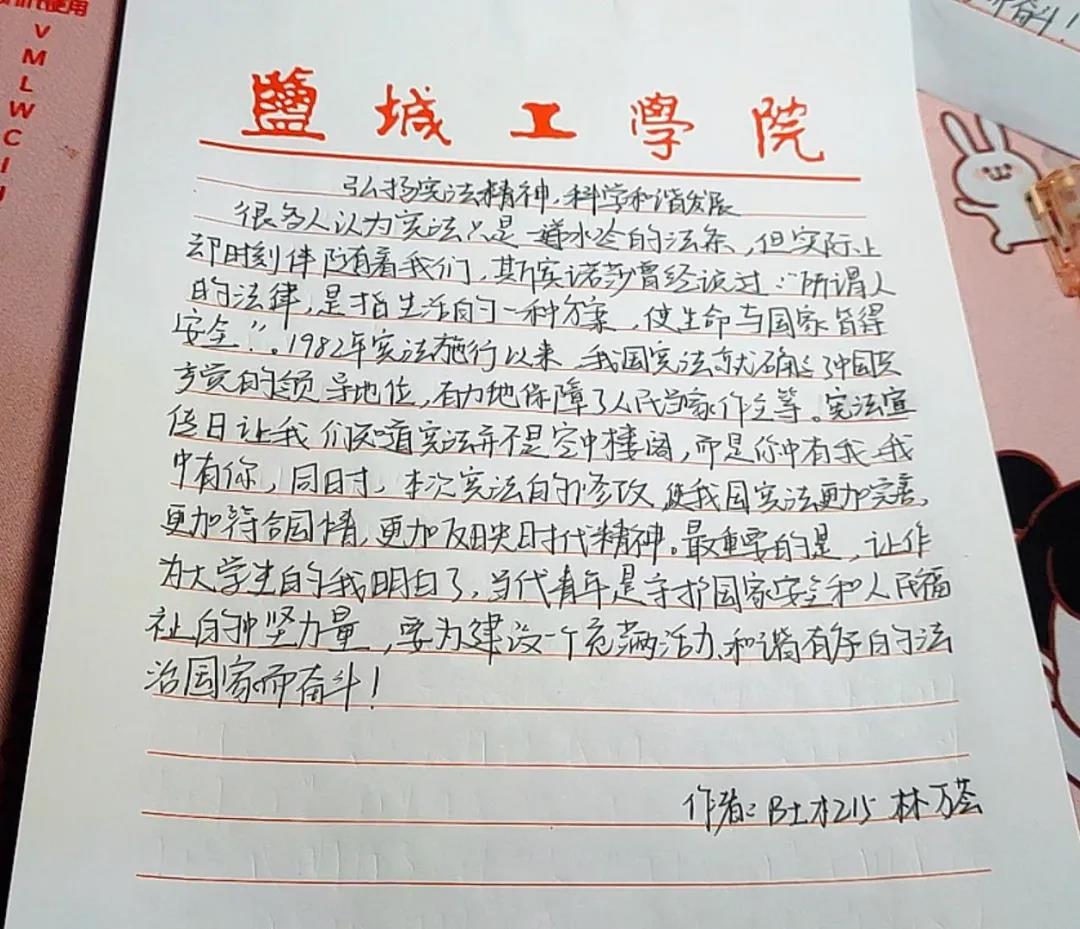 使用
V
M
L
W
C
I
而奋斗!
鹽城工學院
弘扬宪法精神,科学和谐发展
很多人认为宪法只是一簿冰冷的法条,但实际上
却时刻伴随着我们,斯宾诺莎曾经说过:“所谓人
的法律,是指生活的一种方案,使生命与国家皆得
安全”。1982年宪法施行以来,我国宪法就确立了中国共
产党的领导地位,有力地保障了人民当家作主等。宪法宣
传日让我们知道宪法并不是空中楼阁,而是你中有我,我
中有你,同时,本次宪法的修改,使我国宪法更加完善,
更加符合国情,更加反映时代精神。最重要的是,让作
为大学生的我明白了,当代青年是守护国家安全和人民福
祉的中坚力量,要为建设一个充满活力、和谐有序的法
治国家而奋斗!
作者:B土木215 林万荟